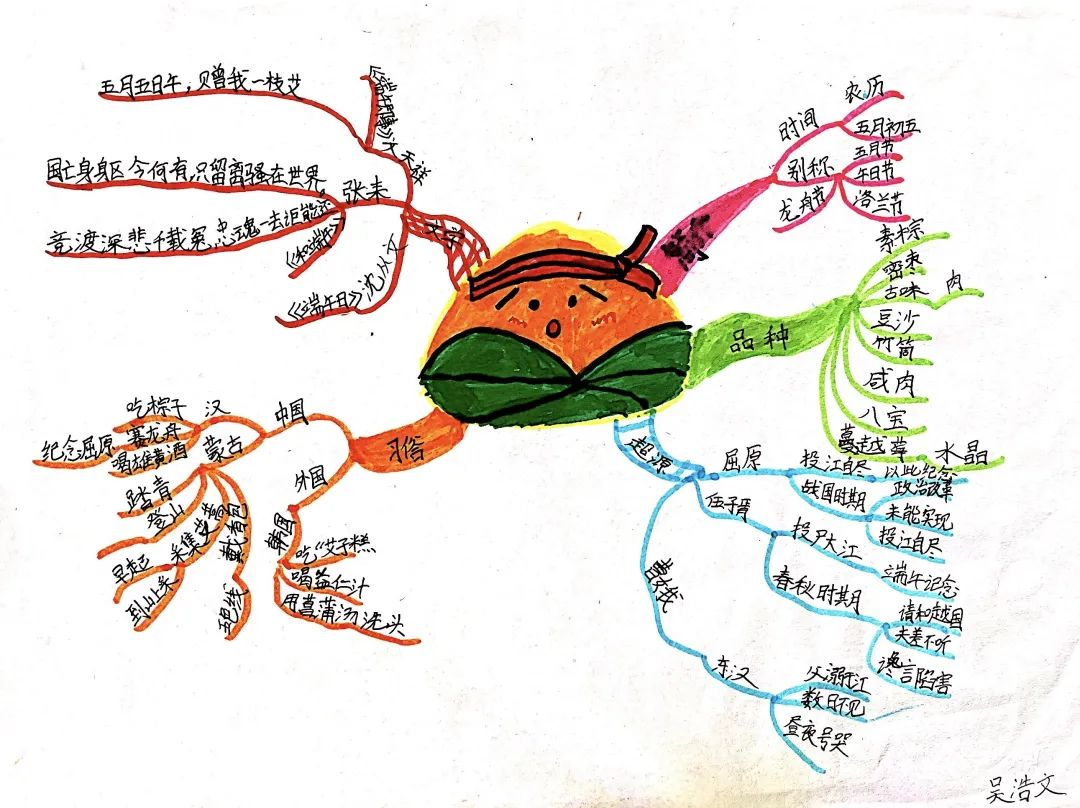 五月五日午，赠我一枝艾
《端午即事》
文天祥
国亡身身区今何有，只留离骚在世界。
张耒
竞渡深悲千载冤，忠魂一去讵能还
《和端午》
文学
沈从文
《端午日》
农历
时间
五月初五
五月节
别称
午日节
龙舟节
洛兰节
素粽
密枣
古味
肉
豆沙
品种
竹筒
咸肉
八宝
蔓越莓
水晶
习俗
中国
汉
吃粽子
赛龙舟
喝雄黄酒
纪念屈原
蒙古
踏青
登山
采集
早起
到山上采
戴香包
外国
韩国
吃“艾子糕
喝益仁汁
用菖蒲汤洗头
起源
屈原
投江自尽
以此纪念
战国时期
政治改革
未能实现
投江自尽
伍子胥
投尸大江
端午记念
春秋时期
请和越国
夫差不听
谗言陷害
曹娥
东汉
父溺于江
数日不见
昼夜号哭
吴浩文